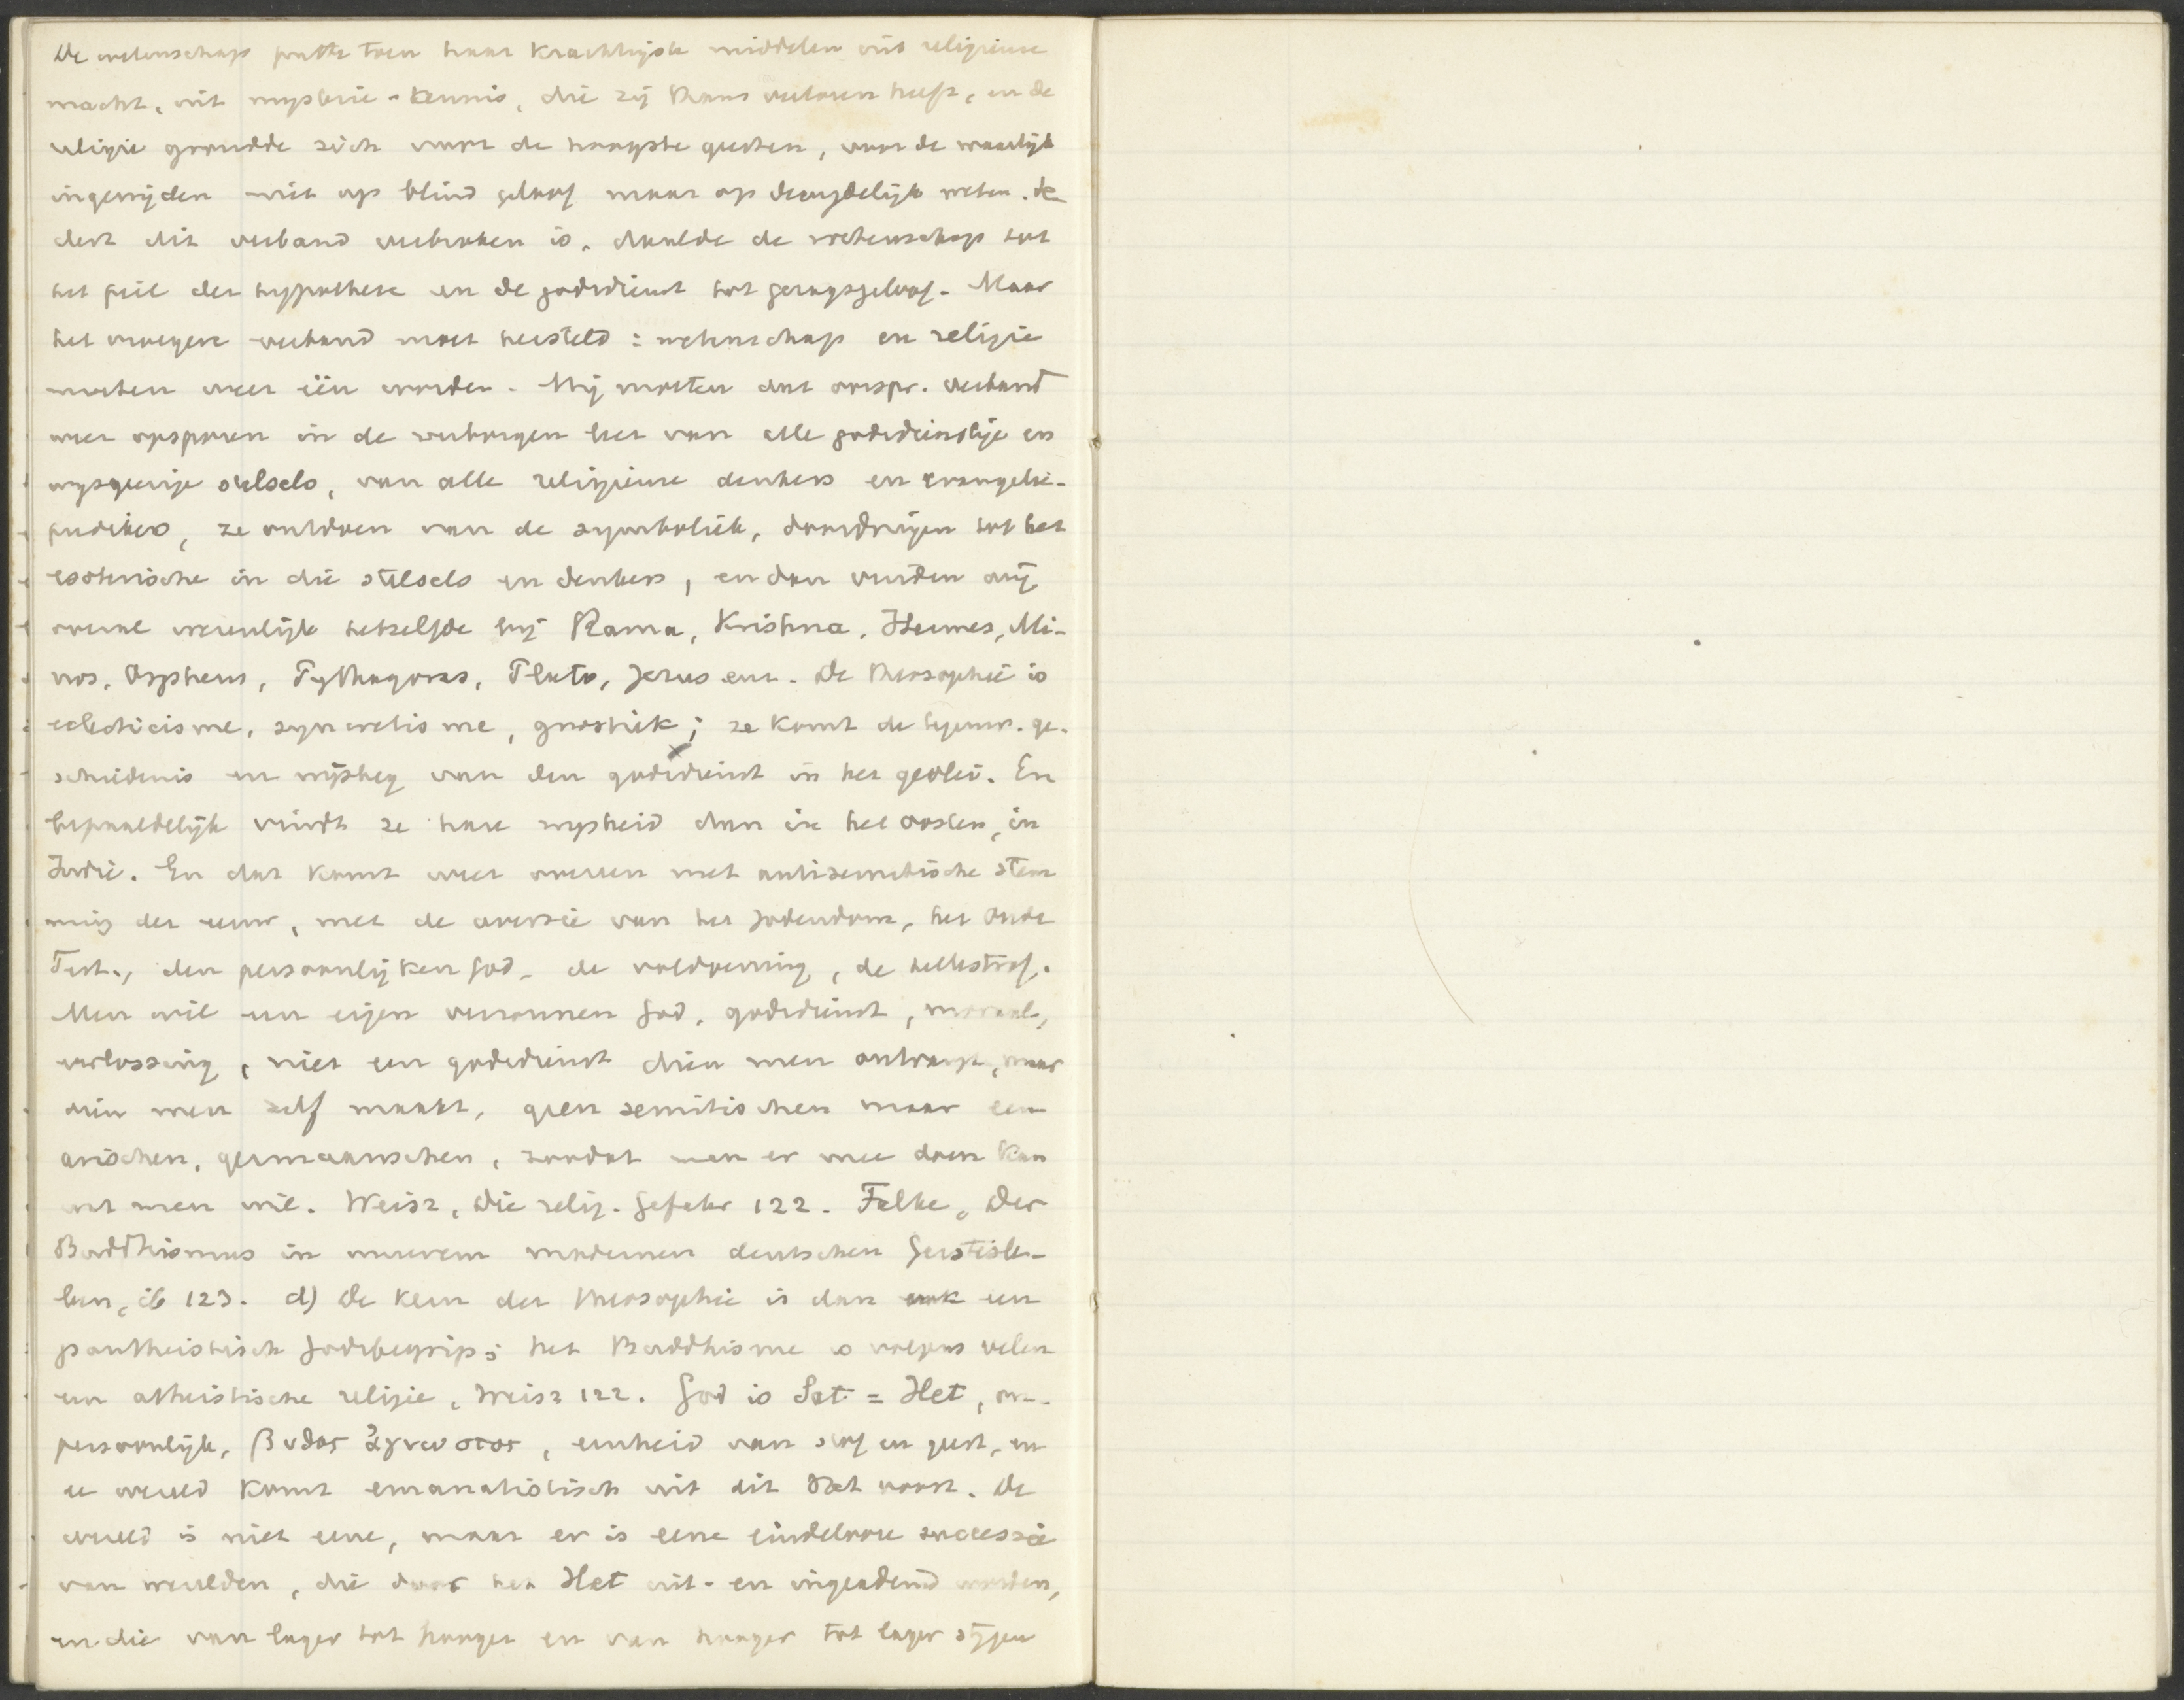 De wetenschap putte toen haar krachtigste middelen uit religieuse
macht, uit mysterie-kennis, die zij thans verloren heeft, en de
religie grondde zich voor de hoogste geesten, voor de waarlijk
ingewijden niet op blind geloof maar op deugdelijk weten. Se
dert dit verband verbroken is, daalde de wetenschap tot
het peil der hypothese en de godsdienst tot gezagsgeloof. Maar
het vroegere verband moet hersteld: wetenschap en religie
moeten weer één worden. Wij moeten dat oorspr. verband
weer opsporen in de verborgen leer van alle godsdienstige en
wijsgeerige stelsels, van alle religieuse denkers en evangelie-
predikers, ze ontdoen van de symboliek, doordringen tot het
esoterische in die stelsels en denkers, en dan vinden wij
overal wezenlijk hetzelfde bij Rama, Krishna, Hermes, Mi-
nos, Orpheus, Pythagoras, Plato, Jezus enz. De theosophie is
eclecticisme, syncretisme, gnostiek; ze komt de tegenw. ge-
schiedenis en wijsbeg van den godsdienst in het gevlei. En
bepaaldelijk vindt ze hare wijsheid dan in het oosten, in
Indië. En dat komt weer overeen met antisemitische stem
ming der eeuw, met de aversie van het Jodendom, het Oude
Test., den persoonlijken God, de voldoening, de hellestraf.
Men wil een eigen verzonnen God, godsdienst, moraal,
verlossing, niet een godsdienst dien men ontvangt, maar
dien men zelf maakt, geen semitischen maar een
arischen, germaanschen, zoodat men er mee doen kan
wat men wil. Weisz, Die relig. Gefahr 122. Falke, Der
Buddhismus in unserem modernen deutschen Geistesle-
ben, ib 123. d) De kern der theosophie is dan ook een
pantheistisch Godsbegrip; het Buddhisme is volgens velen
een atheistische religie, Weisz 122. God is Sat = Het, on-
persoonlijk, βυθος ἀγνωστος, eenheid van stof en geest, en
de wereld komt emanatistisch uit dit Sat voort. De
wereld is niet eene, maar er is eene eindelooze successie
van werelden, die door het Het uit- en ingeademd worden,
en die van lager tot hooger en van hooger tot lager stijgen